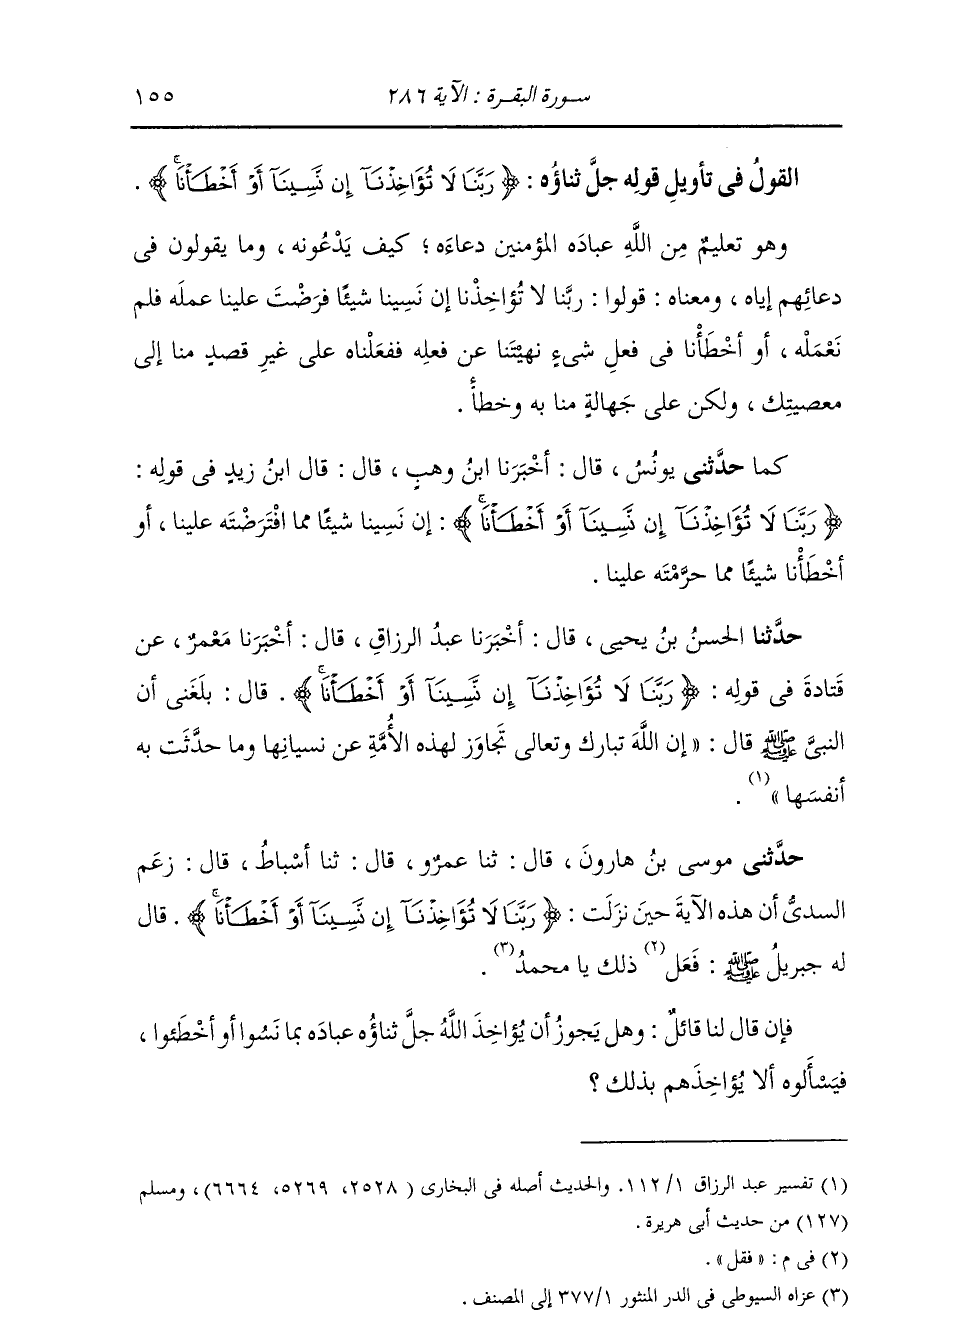 سورة البقرة : الآية ٢٨٦ ١٥٥
القولُ فى تأويلِ قولِه جلَّ ثناؤُه : ﴿ رَبَّنَا لَا تُؤَاخِذْنَآ إِن نَّسِينَآ أَوْ أَخْطَأْنَاۚ ﴾ .
وهو تعليمٌ مِن اللَّهِ عبادَه المؤمنين دعاءَه ؛ كيف يَدْعُونه ، وما يقولون فى
دعائِهم إياه ، ومعناه : قولوا : ربَّنا لا تُؤاخِذْنا إن نَسِينا شيئًا فرَضْتَ علينا عملَه فلم
نَعْمَلْه ، أو أخْطَأْنا فى فعلِ شىءٍ نهيْتَنا عن فعلِه ففعَلْناه على غيرِ قصدٍ منا إلى
معصيتِك ، ولكن على جَهالةٍ منا به وخطأً .
كما حدَّثنى يونُسُ ، قال : أخْبَرَنا ابنُ وهبٍ ، قال : قال ابنُ زيدٍ فى قولِه :
﴿ رَبَّنَا لَا تُؤَاخِذْنَآ إِن نَّسِينَآ أَوْ أَخْطَأْنَاۚ ﴾ : إن نَسِينا شيئًا مما افْتَرَضْتَه علينا ، أو
أخْطَأْنا شيئًا مما حرَّمْتَه علينا .
حدَّثنا الحسنُ بنُ يحيى ، قال : أخْبَرَنا عبدُ الرزاقِ ، قال : أخْبَرَنا مَعْمرٌ ، عن
قَتادةَ فى قولِه : ﴿ رَبَّنَا لَا تُؤَاخِذْنَآ إِن نَّسِينَآ أَوْ أَخْطَأْنَاۚ ﴾ . قال : بلَغَنى أن
النبىَّ ﷺ قال : « إن اللَّهَ تبارك وتعالى تَجاوَز لهذه الأُمَّةِ عن نسيانِها وما حدَّثَت به
أنفسَها »(١) .
حدَّثنى موسى بنُ هارونَ ، قال : ثنا عمرٌو ، قال : ثنا أسْباطُ ، قال : زعَم
السدىُّ أن هذه الآيةَ حينَ نزَلَت : ﴿ رَبَّنَا لَا تُؤَاخِذْنَآ إِن نَّسِينَآ أَوْ أَخْطَأْنَاۚ ﴾ . قال
له جبريلُ ﷺ : فَعَل(٢) ذلك يا محمدُ(٣) .
فإن قال لنا قائلٌ : وهل يَجوزُ أن يُؤاخِذَ اللَّهُ جلَّ ثناؤُه عبادَه بما نَسُوا أو أخْطَئوا ،
فيَسْأَلوه ألا يُؤاخِذَهم بذلك ؟
(١) تفسير عبد الرزاق ١/ ١١٢. والحديث أصله فى البخارى ( ٢٥٢٨، ٥٢٦٩، ٦٦٦٤) ، ومسلم
(١٢٧) من حديث أبى هريرة .
(٢) فى م : « فقل » .
(٣) عزاه السيوطى فى الدر المنثور ٣٧٧/١ إلى المصنف .